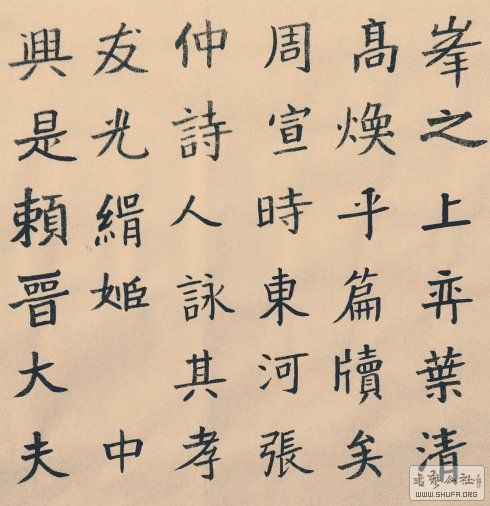 峯之上弈葉清
髙煥乎篇牘矣
周宣時東河張
仲詩人詠其孝
友光緝姬 中
興是賴晉大夫
书艺公社
WWW.SHUFA.ORG